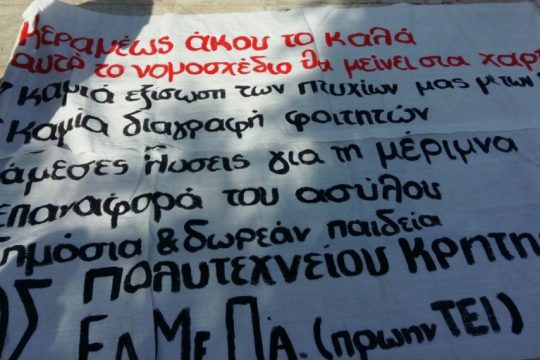 Κεραμέως άκου το καλά
αυτό το νομοσχέδιο θα μείνει στα χαρτ
καμιά εξίσωση των πτυχίων μας με των
Καμία διαγραφή φοιτητών
άμεσες λύσεις για τη μέριμνα
επαναφορά του ασύλου
δημόσια & δωρεάν παιδεία
ΟΣ ΠΟΛΥΤΕΧΝΕΙΟΥ ΚΡΗΤΗ
ΕΛΜΕΠΑ. (πρωην ΤΕΙ)